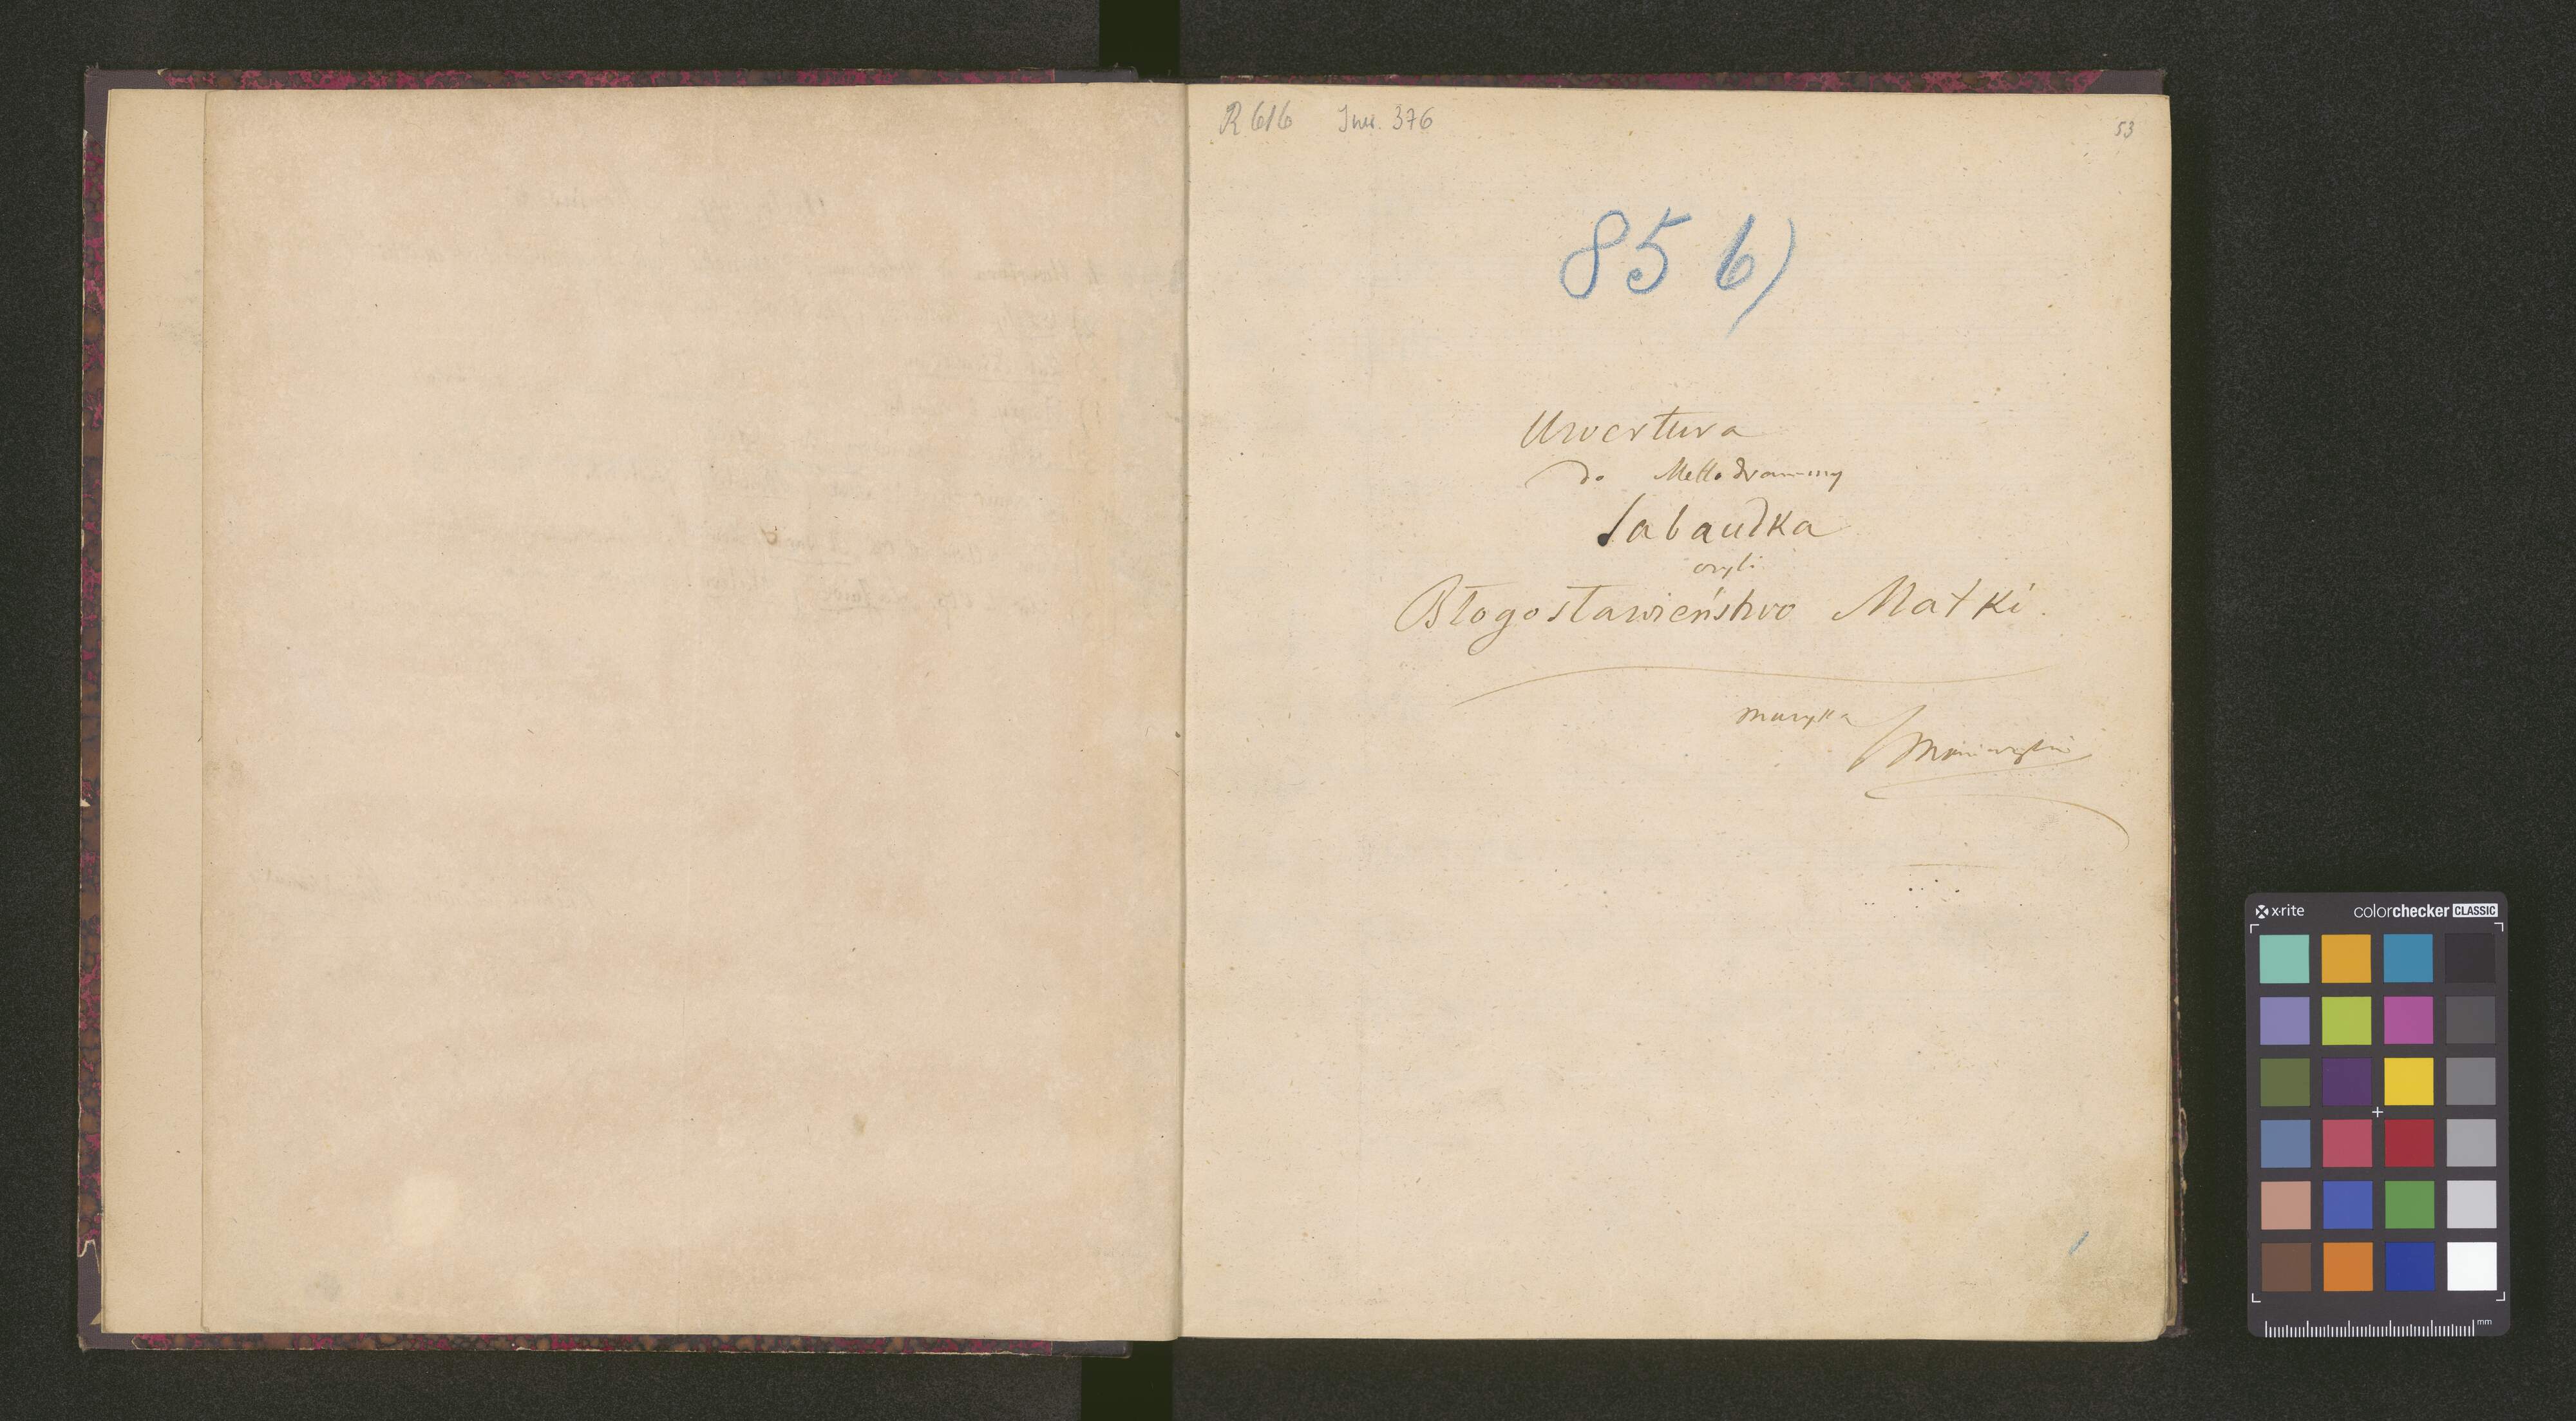 R 616 Inw. 376
53
85 b)
Uwertura
do Mellodrammy
Sabaudka
czyli
Błogosławieństwo Matki.
muzyka
SMoniuszki
x·rite colorchecker CLASSIC
mm